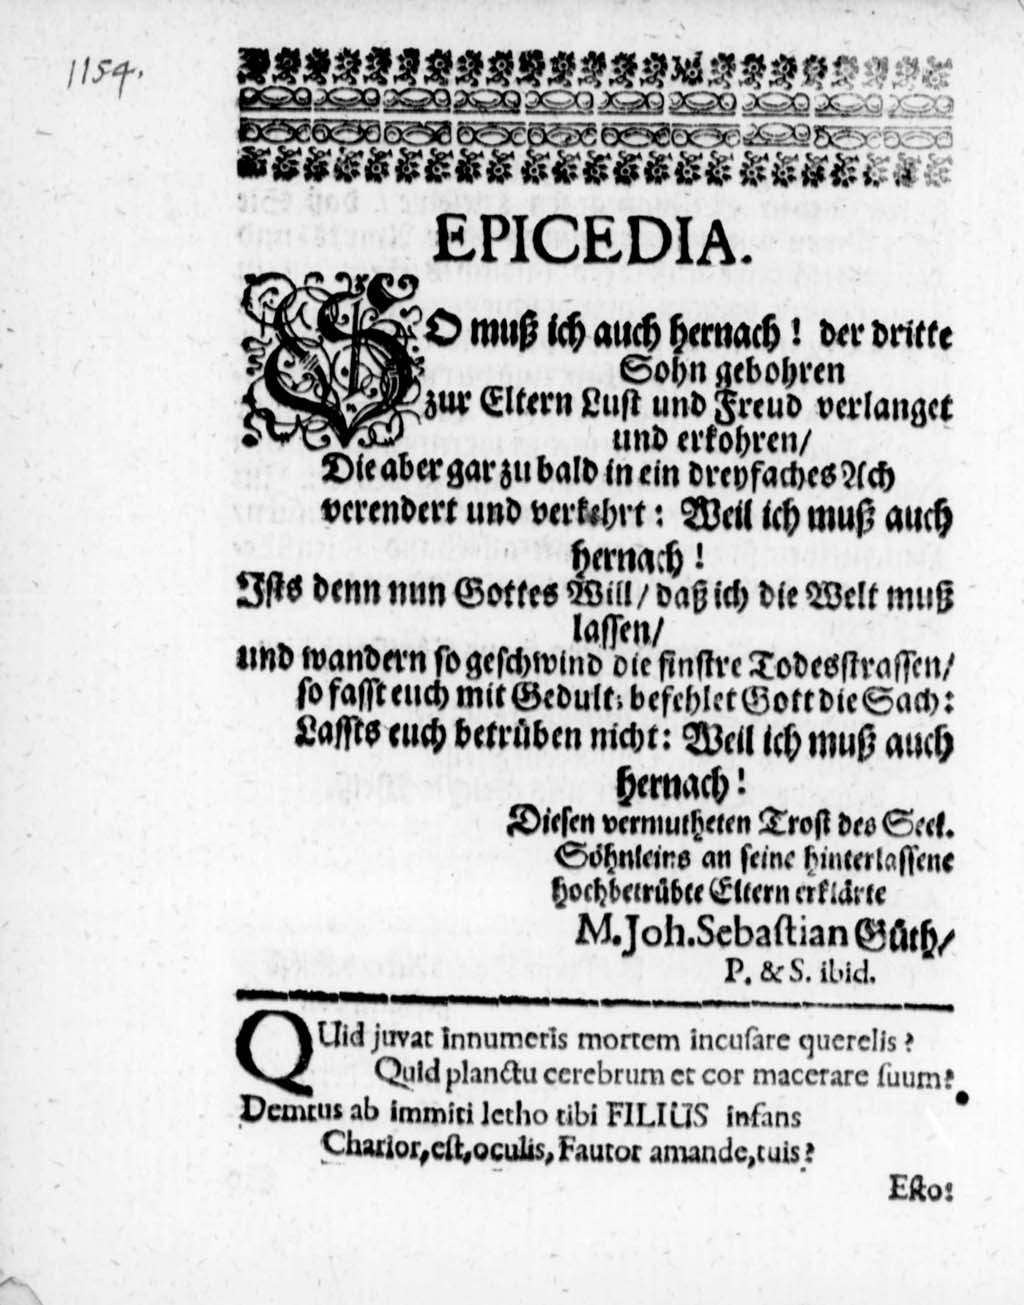 1154.
EPICEDIA.
SO muß ich auch hernach! der dritte
Sohn gebohren
zur Eltern Lust und Freud verlanget
und erkohren/
Die aber gar zu bald in ein dreyfaches Ach
verendert und verkehrt: Weil ich muß auch
hernach!
Ists denn nun Gottes Will/ daß ich die Welt muß
lassen/
und wandern so geschwind die finstre Todesstrassen/
so fasst euch mit Gedult; befehlet Gott die Sach:
Lassts euch betrüben nicht: Weil ich muß auch
hernach!
Diesen vermutheten Trost des Seel.
Söhnleins an seine hinterlassene
hochbetrübte Eltern erklärte
M. Joh. Sebastian Güth/
P. & S. ibid.
QUid juvat innumeris mortem incusare querelis?
Quid planctu cerebrum et cor macerare suum?
Demtus ab immiti letho tibi FILIUS infans
Charior, est, oculis, Fautor amande, tuis?
Esto: